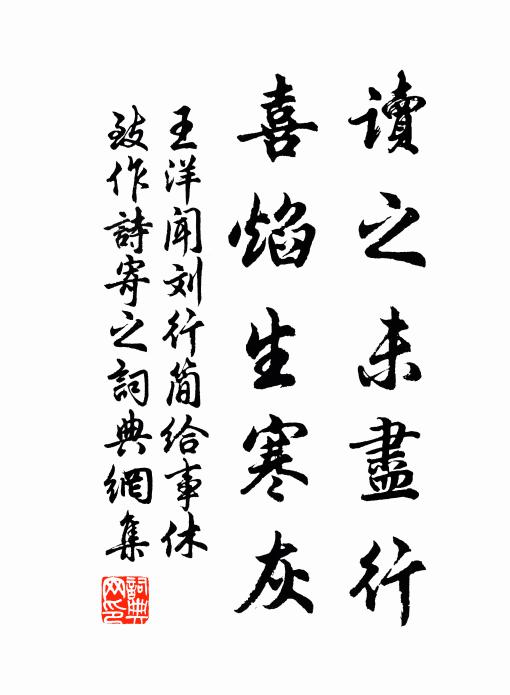 讀之未盡行
喜焰生寒灰
王洋闻刘行简给事休
致作詩寄之詞典網集
詞典
网印